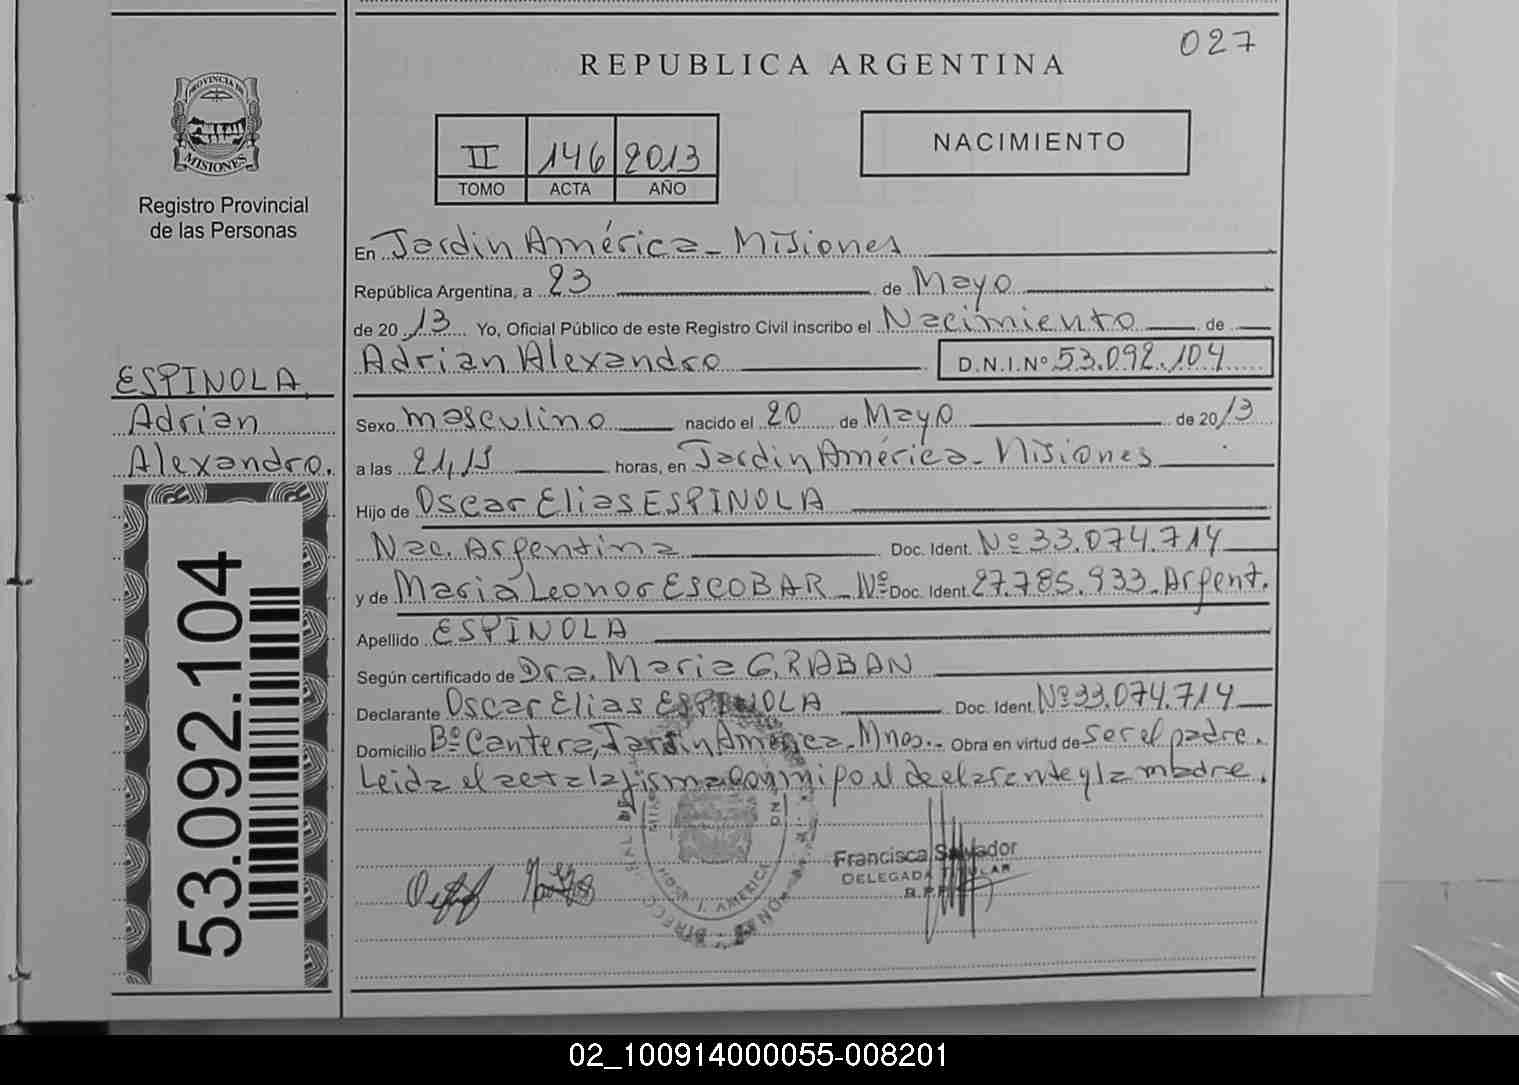 027
REPUBLICA ARGENTINA
PROVINCIA DE
MISIONES
Registro Provincial
de las Personas
II 146 2013
TOMO ACTA AÑO
NACIMIENTO
En Jardin América - Misiones
República Argentina, a 23 de Mayo
de 2013 Yo, Oficial Público de este Registro Civil inscribo el Nacimiento de
Adrian Alexandro D.N.I.Nº 53.092.104
ESPINOLA,
Adrian
Alexandro.
53.092.104
Sexo masculino nacido el 20 de Mayo de 2013
a las 21,15 horas, en Jardin América - Misiones
Hijo de Oscar Elias ESPINOLA
Nac. Argentina Doc. Ident. Nº 33.074.714
y de Maria Leonor ESCOBAR - Nº Doc. Ident. 27.785.933. Argent.
Apellido ESPINOLA
Según certificado de Dra. Maria G. RABAN
Declarante Oscar Elias ESPINOLA Doc. Ident. Nº 33.074.714
Domicilio Bº Cantera, Jardin América - Mnes.- Obra en virtud de ser el padre.
Leida el acta la firma con migo el declarante y la madre.
Francisca Salvador
DELEGADA TITULAR
AMERICA
02_100914000055-008201